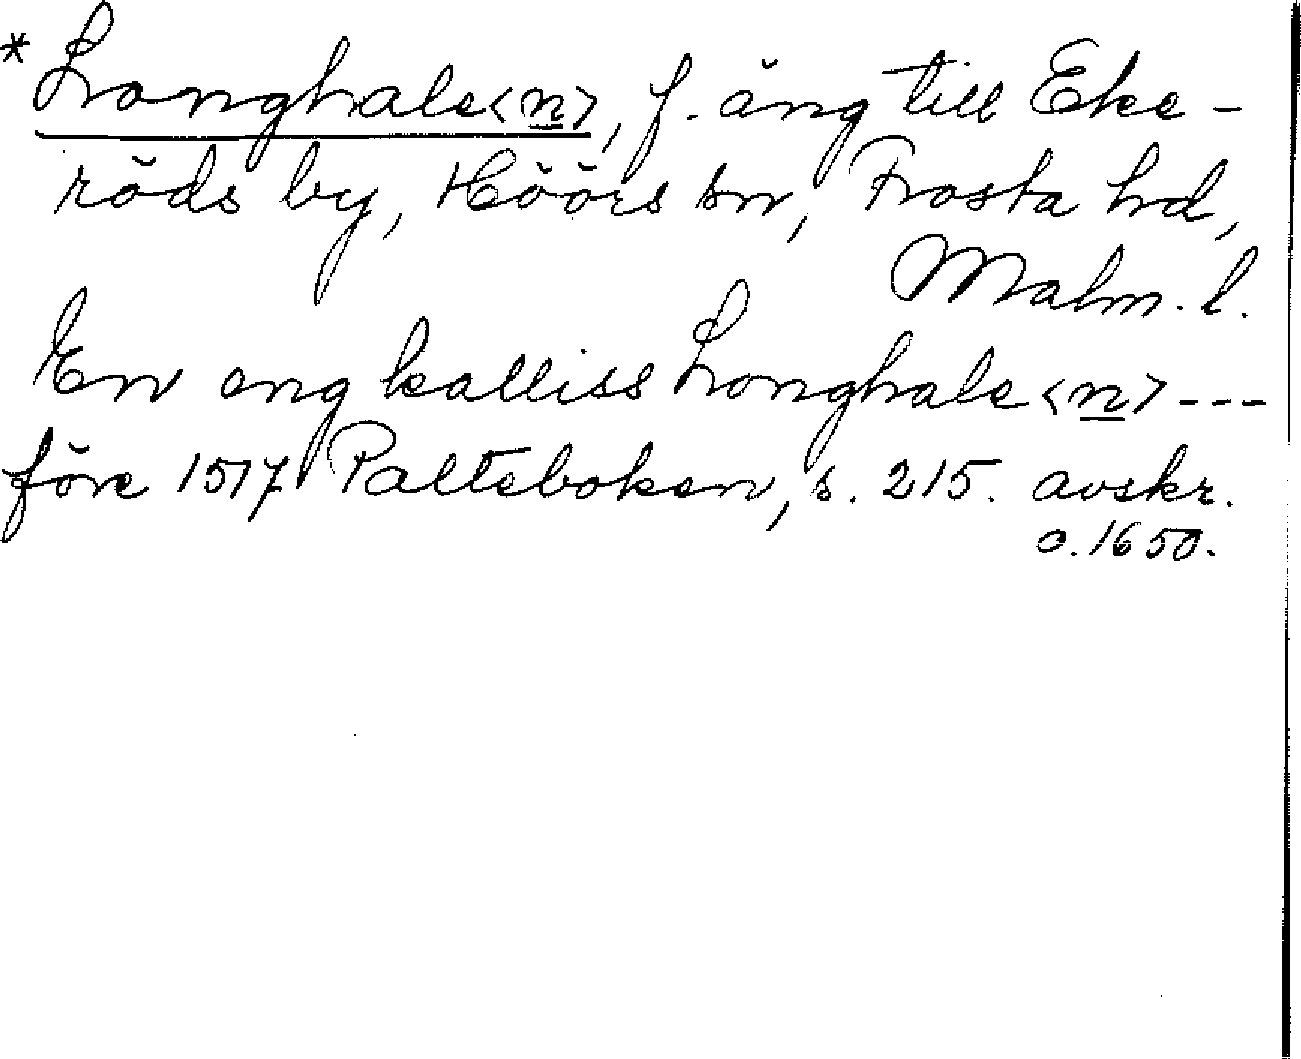 * Longhale<n>, f. äng till Eke-
röds by, Höörs sn, Frosta hd,
Malm. l.
En eng kalliss Longhale<n> ---
före 1517 Palteboken, s. 215. avskr.
o. 1650.